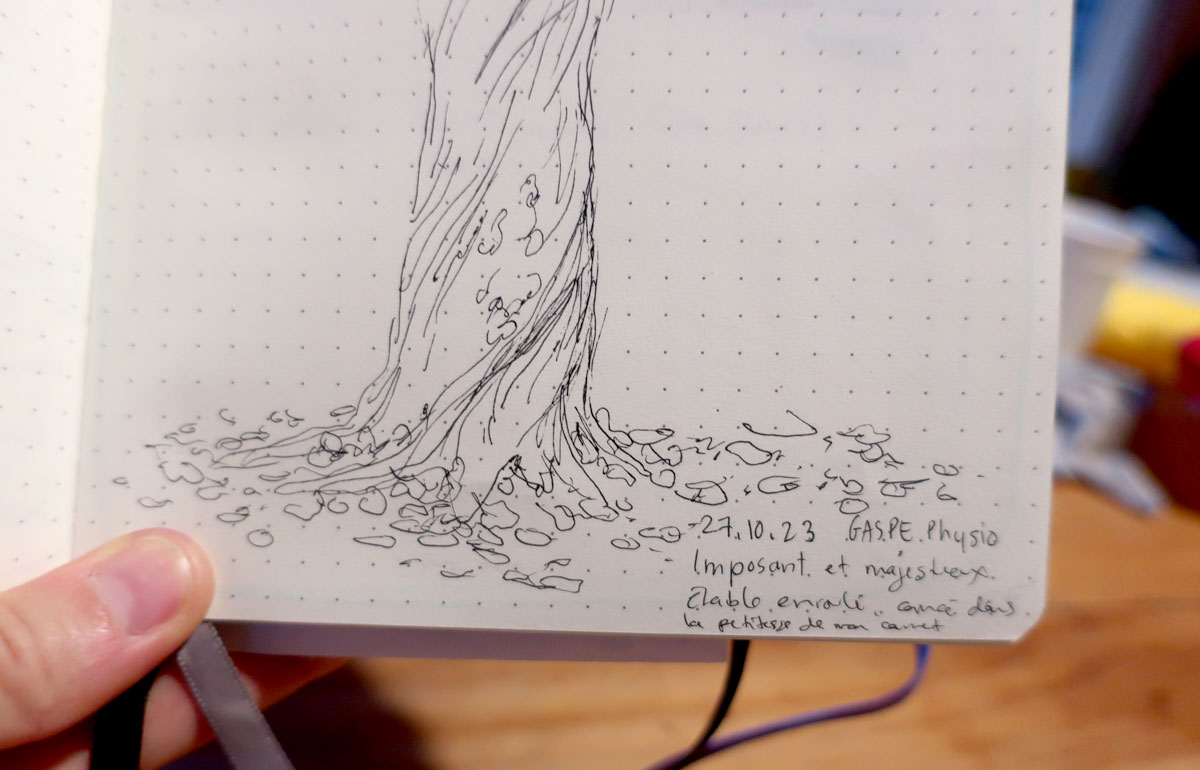 27.10.23 GASPE. Physio
Imposant. et majestueux.
enroulé.. coincé dans
la petitesse de mon carnet